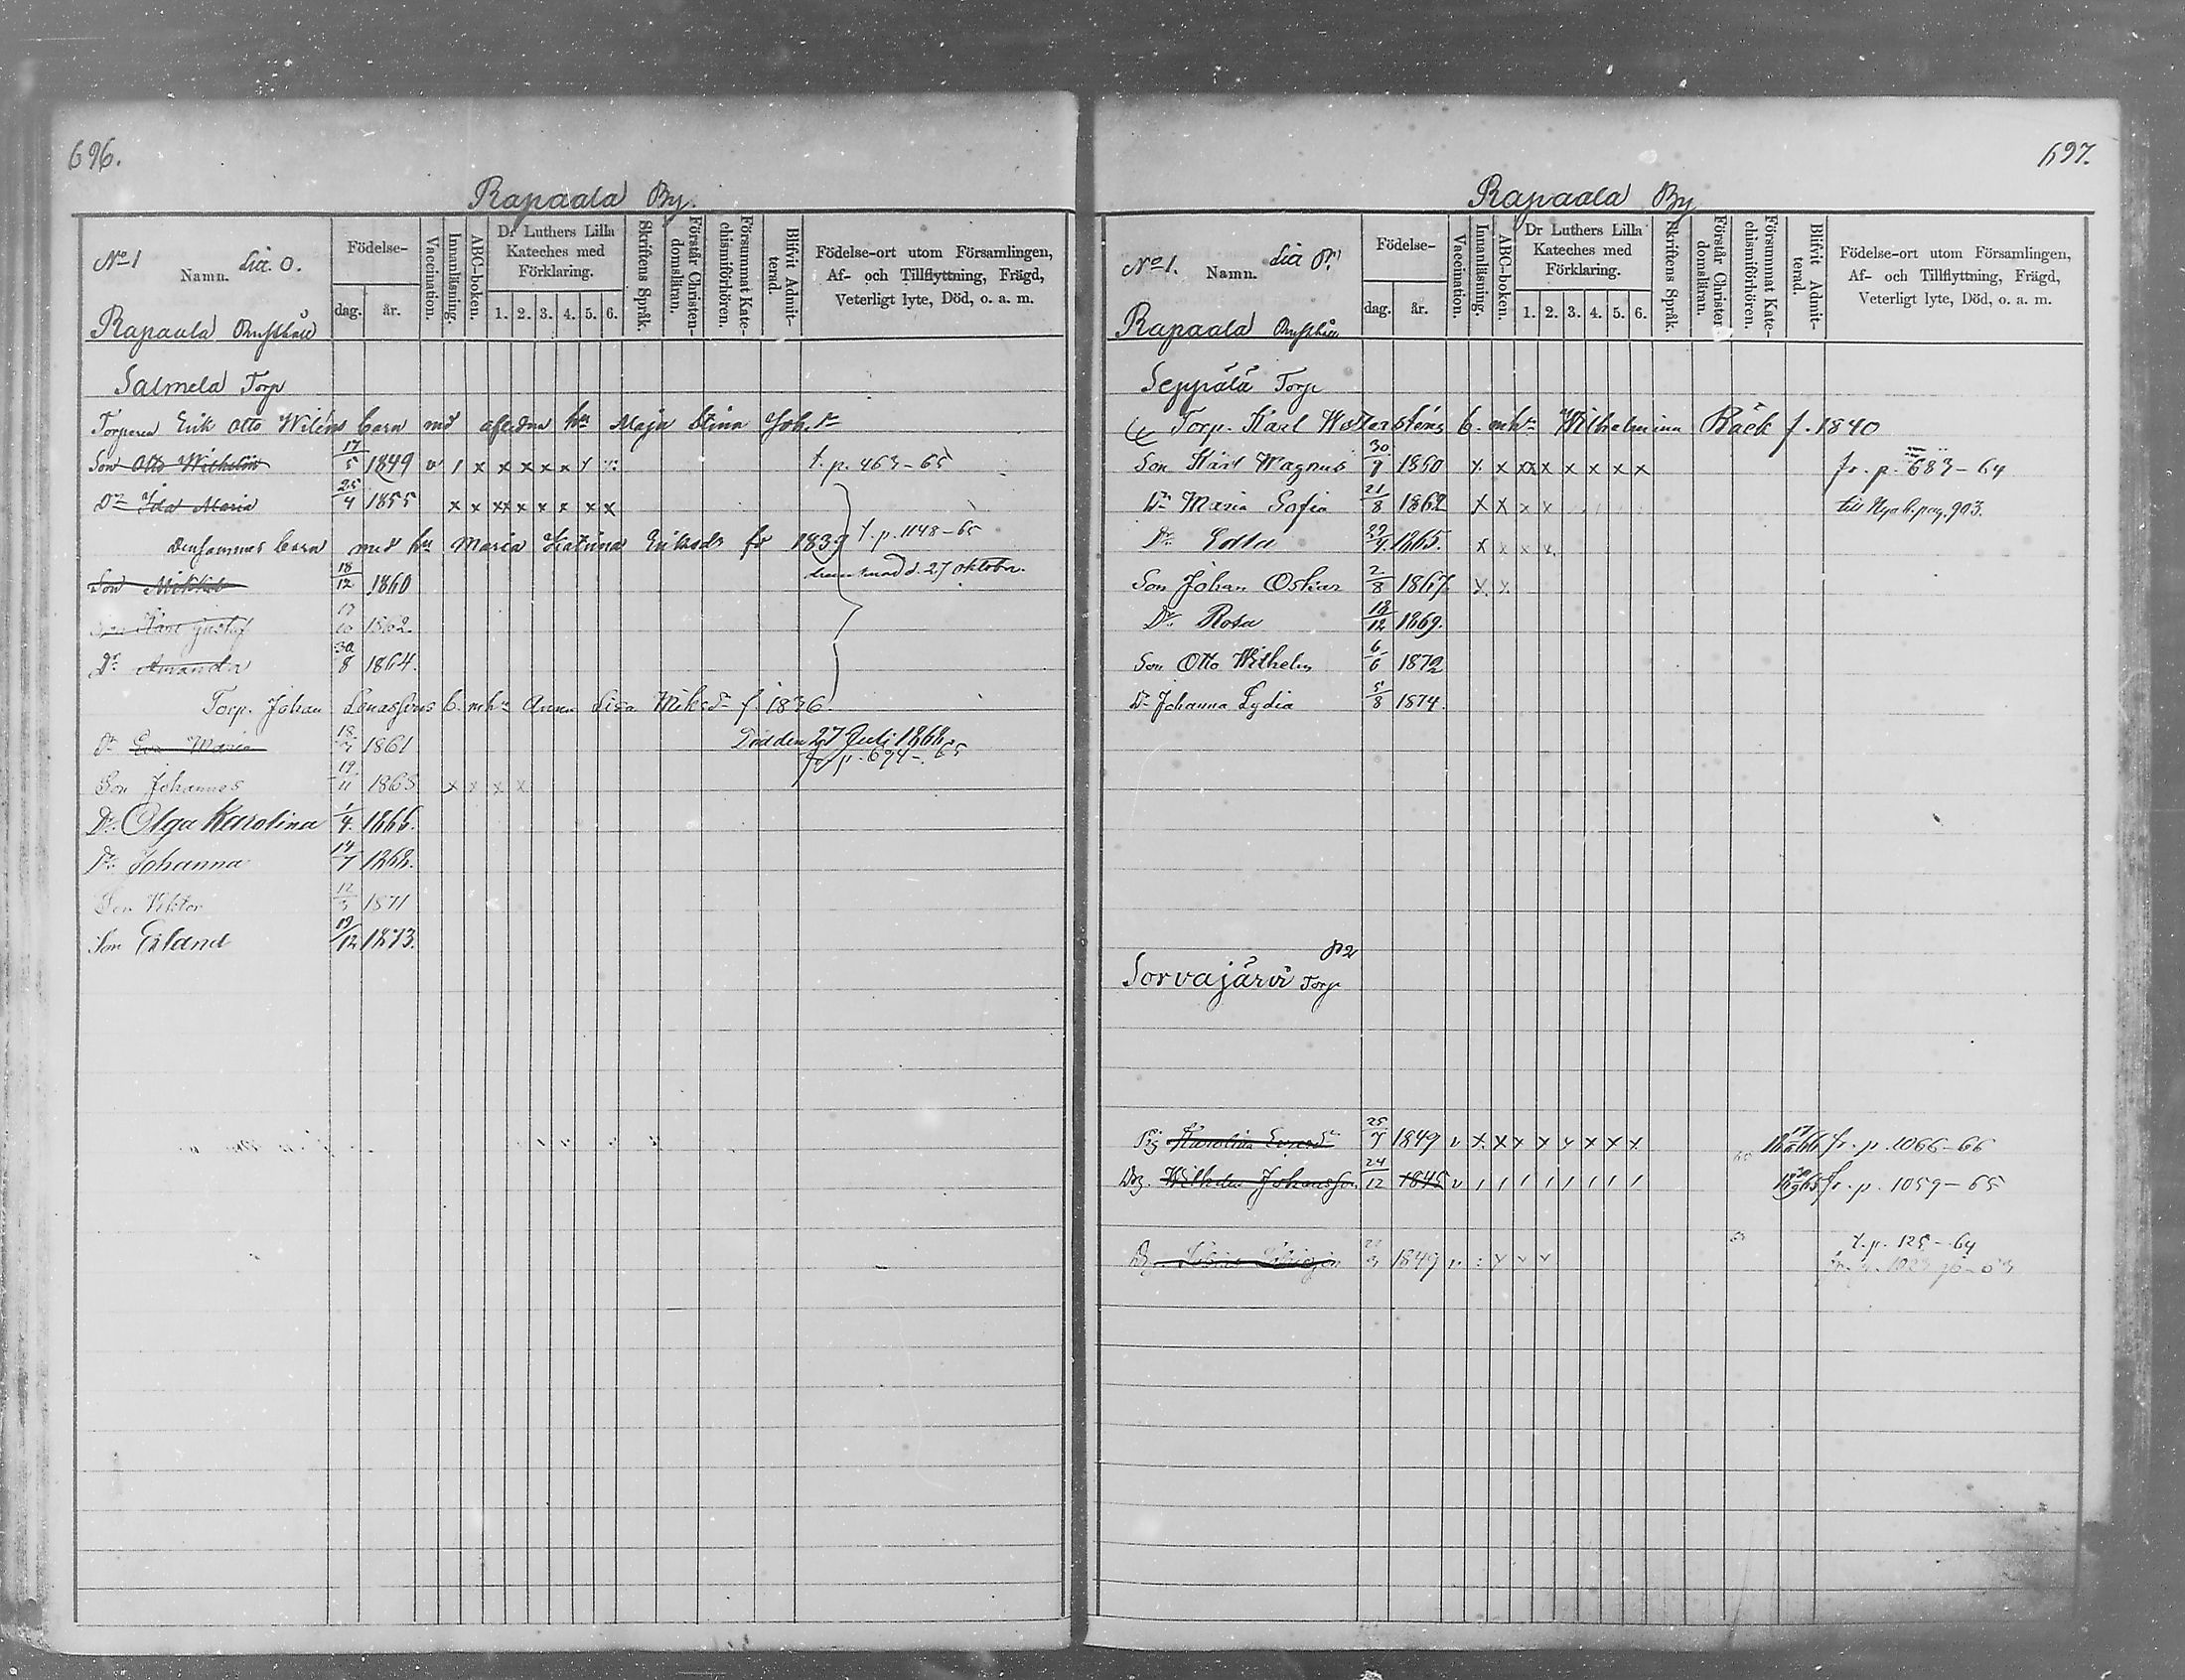 696.
Rapaala By.
No 1 Namn. Litt. O.
Födelse-
dag. år.
Vaccination.
Innanläsning.
ABC-boken.
Dr Luthers Lilla Kateches med Förklaring.
1. 2. 3. 4. 5. 6.
Skriftens Språk.
Förstår Christendomsläran.
Försummat Katechismiförhören.
Blifvit Admitterad.
Födelse-ort utom Församlingen, Af- och Tillflyttning, Frägd, Veterligt lyte, Död, o. a. m.
Rapaala Rusthåll
Salmela Torp
Torparen Erik Otto Wiléns barn med aflidna hu Maja Stina Joh. dr
Son Otto Wilhelm 17/5 1849 v 1 x x x x x t. p. 463-65
Dr Ida Maria 25/4 1855 x x x x x x x x
Densammes barn med hu Maria Katrina Eriksdr fö 1839 t. p. 1148-65
Son Mikkel 18/12 1860 d. 27 oktober.
Son Karl Gustaf 17/10 1862
Dr Amanda 30/8 1864.
Torp. Johan Lenassons b. m hu Anna Lisa Miksdr f. 1836
Dr Eva Maria 18/7 1861 Död den 27 Juli 1868.
fr. p. 694-65
Son Johannes 19/11 1863 x x x x
Dr. Olga Karolina 1/4. 1866.
Dr. Johanna 14/7 1868.
Son Viktor 12/3 1871
Son Erland 19/12 1873.
697.
Rapaala By
No 1. Namn. Litt P.
Födelse-
dag. år.
Vaccination.
Innanläsning.
ABC-boken.
Dr Luthers Lilla Kateches med Förklaring.
1. 2. 3. 4. 5. 6.
Skriftens Språk.
Förstår Christendomsläran.
Försummat Katechismiförhören.
Blifvit Admitterad.
Födelse-ort utom Församlingen, Af- och Tillflyttning, Frägd, Veterligt lyte, Död, o. a. m.
Rapaala Rusthåll
Seppälä Torp
Torp. Karl Westersténs b. m hu Wilhelmina Bäck f. 1840
Son Karl Magnus 30/9 1860 x x x x x x x x x fr. p. 683-64
Dr Maria Sofia 21/8 1862 x x x x till Nya b. pag. 903.
Dr. Edla 29/4. 1865. x x x x
Son Johan Oskar 2/8 1867. x x
Dr. Rosa 18/12 1869.
Son Otto Wilhelm 6/6 1872
Dr Johanna Lydia 5/8 1874.
P2
Sorvajärvi Torp
Pig Karolina 25/7 1849 v x x x x x x x x fr. p. 1066-66
Drg. Wilhelm Johansson 24/12 1845 v 1 1 1 1 1 1 1 1 fr. p. 1059-65
1849 v. t. p. 125-64